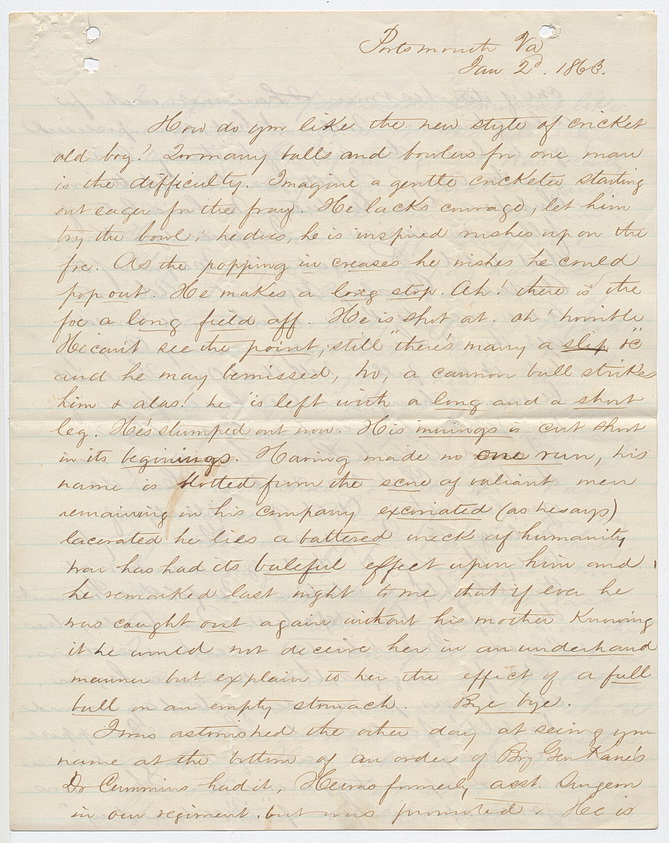 Portsmouth Va
Jan 2d. 1863.
How do you like the new style of cricket
old boy! Too many balls and bowlers for one man
is the difficulty. Imagine a gentle cricketer starting
out eager for the fray. He lacks courage, let him
try the bowl; he does, he is inspired rushes up on the
foe. As the popping in creases he wishes he could
pop out. He makes a long stop. Ah! there is the
foe a long field off. He is shot at. oh! horrible
He cant see the point, still "there's many a slip &c"
and he may be missed, No, a cannon ball strikes
him & alas! he is left with a long and a short
leg. He's stumped out now. His innings is cut short
in its beginings. Having made no one run, his
name is blotted from the score of valiant men
remaining in his company excoriated (as he says)
lacerated he lies a battered wreck of humanity
war has had its baleful effect upon him and
he remarked last night to me that if ever he
was caught out again without his mother knowing
it he would not deceive her in an underhand
manner but explain to her the effect of a full
ball on an empty stomach. Bye bye.
I was astonished the other day at seing your
name at the bottom of an order of Brig Gen Kane's
Dr Cummins had it, He was formerly asst. Surgeon
in our regiment. but was promoted. He is